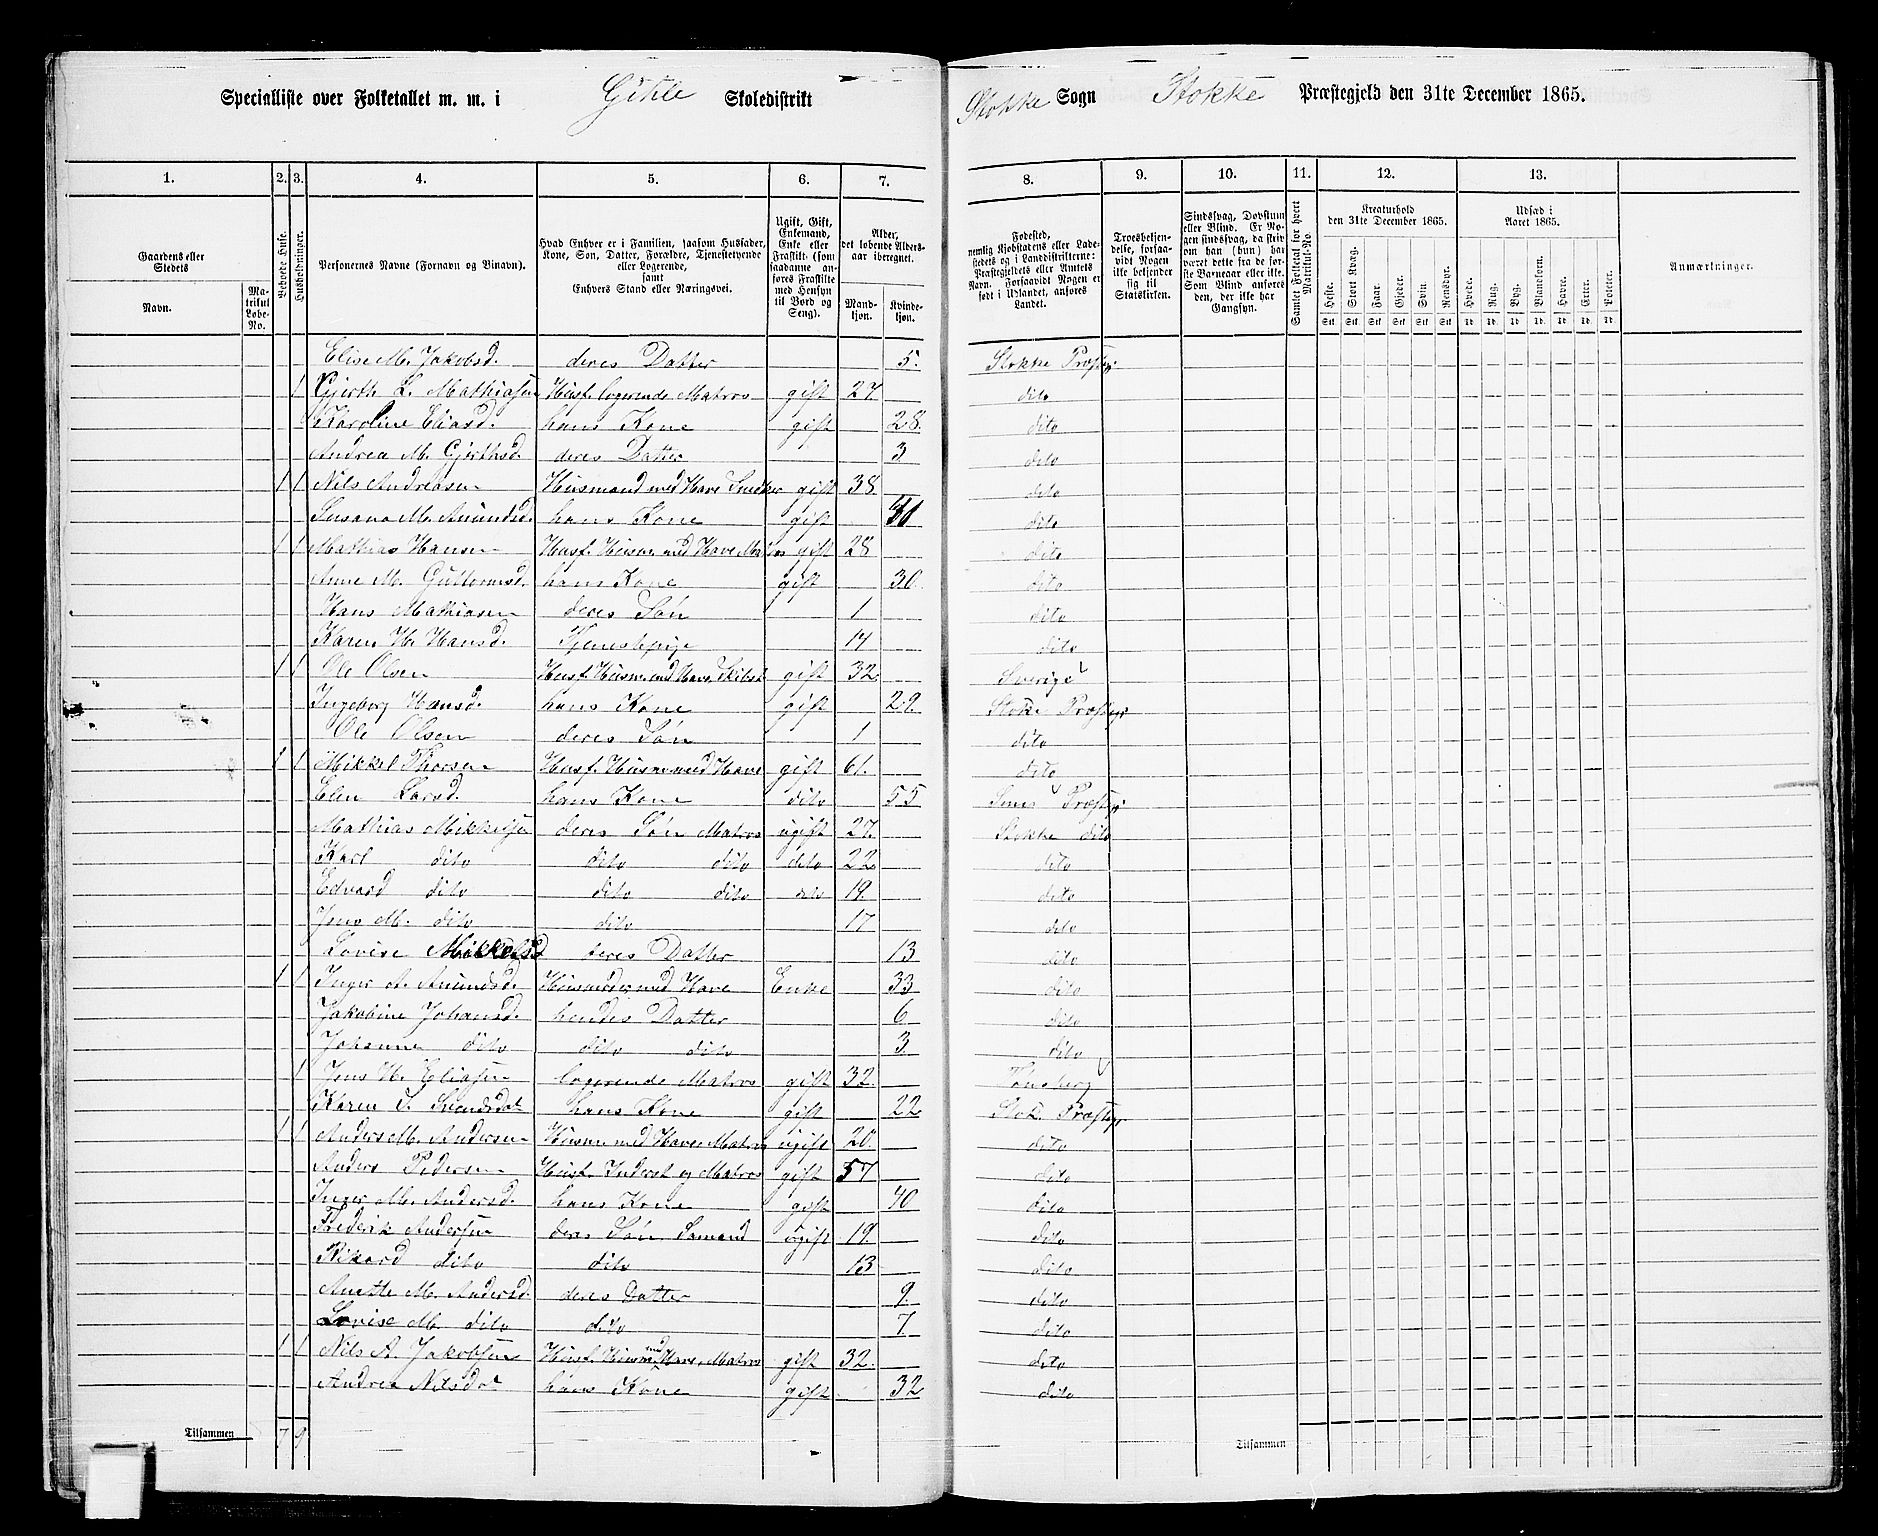 Specialliste over Folketallet m. m. i Gihle Skoledistrikt Stokke Sogn Stokke Præstegjeld den 31te December 1865.
1. 2. 3. 4. 5. 6. 7. 8. 9. 10. 11. 12. 13.
Gaardens eller Stedets
Navn.
Matrikul Løbe-No.
Beboede Huse.
Husholdninger.
Personernes Navne (Fornavn og Binavn).
Hvad Enhver er i Familien, saasom Husfader, Kone, Søn, Datter, Forældre, Tjenestetyende eller Logerende,
samt
Enhvers Stand eller Næringsvei.
Ugift, Gift, Enkemand, Enke eller Fraskilt (som saadanne anføres Fraskilte med Hensyn til Bord og Seng).
Alder, det løbende Aldersaar iberegnet.
Mandkjøn.
Kvindekjøn.
Fødested,
nemlig Kjøbstadens eller Ladestedets og i Landdistrikterne: Præstegjeldets eller Amtets Navn. Forsaavidt Nogen er født i Udlandet, anføres Landet.
Troesbekjendelse, forsaavidt Nogen ikke bekjender sig til Statskirken.
Sindssvag, Døvstum eller Blind. Er Nogen sindssvag, da skriv om han (hun) har været dette fra de første Barneaar eller ikke. Som Blind anføres den, der ikke har Gangsyn.
Samlet Folketal for hvert Matrikul-No.
Kreaturhold
den 31te December 1865.
Heste. Stort Kvæg. Faar. Gjeder. Svin. Rensdyr.
Stk. Stk. Stk. Stk. Stk. Stk.
Udsæd i
Aaret 1865.
Hvede. Rug. Byg. Blandkorn. Havre. Erter. Poteter.
Td. Td. Td. Td. Td. Td. Td.
Anmærkninger.
Elise M. Jakobsd. deres Datter 5. Stokke Præsteg.
1 Gjerth L. Mathiasen Husf. logerende Matros gift 27 dito
Karoline Eliasd. hans Kone gift 28. dito
Andrea M. Gjerthsd. deres Datter 3 dito
1 1 Nils Andreasen Husmand med Have Snedker gift 38 dito
Susana M. Amundsd. hans Kone gift 31 dito
1 1 Mathias Hansen Husf. Husm. med Have Matros gift 28 dito
Anne M. Guttormsd. hans Kone gift 30. dito
Hans Mathiasen deres Søn 1 dito
Karen H. Hansd. Tjenestepige 14 dito
1 1 Ole Olsen Husf. Husm. med Have, Skibst. gift 32. Sverige
Ingeborg Hansd. hans Kone gift 29. Stokke Præsteg.
Ole Olsen deres Søn 1 dito
1 1 Mikkel Thorsen Husf. Husm. med Have gift 61. dito
Elen Larsd. hans Kone dito 55 Sems Præsteg.
Mathias Mikkelsen deres Søn Matros ugift 27. Stokke dito
Karl dito dito dito dito 22 dito
Edvard dito dito dito dito 19. dito
Jens M. dito dito 17 dito
Lovise Mikkelsd deres Datter 13 dito
1 1 Inger A. Amundsd. med Have Enke 33 dito
Jakobine Johansd. hendes Datter 6 dito
Johanne dito dito dito 3 dito
1 Jens H. Eliasen logerende Matros gift 32. Tønsberg
Karen S. Svendsdat hans Kone gift 22 Stok. Præsteg.
1 1 Anders M. Andersen Husm. med Have Matros ugift 20. dito
Anders Pedersen Husf. Inderst og Matros gift 57 dito
Inger M. Andersd. hans Kone gift 40 dito
Frederik Andersen deres Søn Sømand ugift 19. dito
Rikard dito dito 13 dito
Anette M. Andersd. deres Datter 9. dito
Lovise M. dito dito 7. dito
1 1 Nils A. Jakobsen Husf. Husm. med Have, Matros gift 32. dito
Andrea Nilsdat hans Kone gift 32 dito
Tilsammen 7 9 Tilsammen